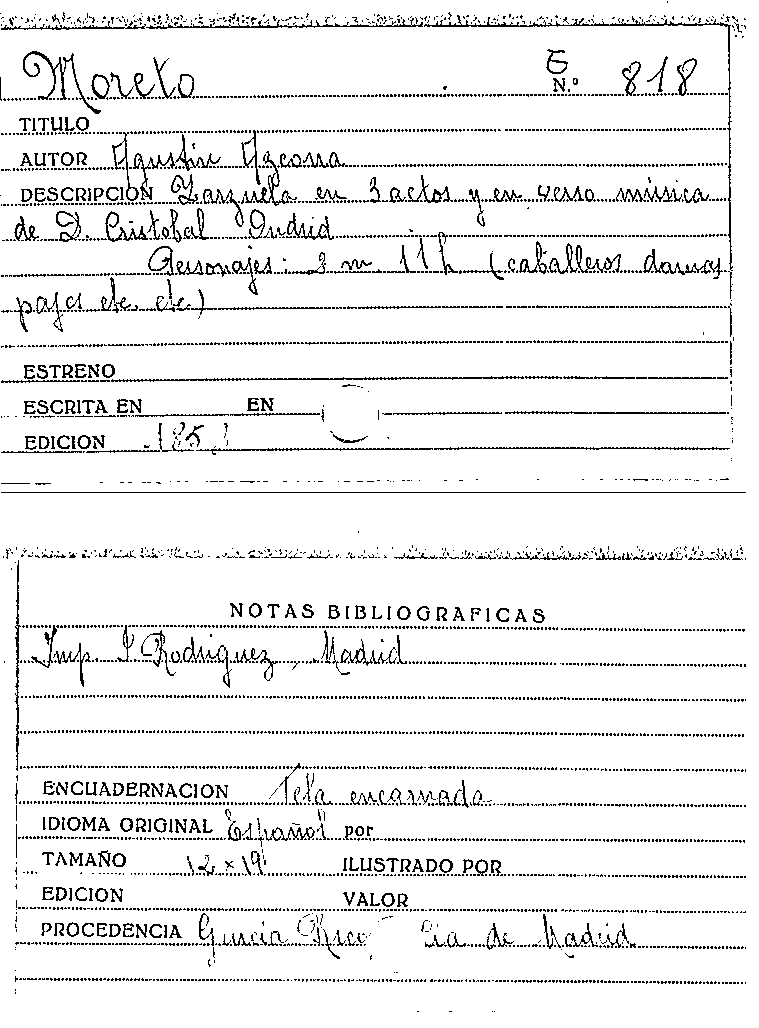 Moreto E
N.º 818
TITULO
AUTOR Agustin Azcona
DESCRIPCION Zarzuela en 3 actos y en verso música
de D. Cristobal Oudrid
Personajes: 3 m 11 h (caballeros damas
pajes etc. etc.)
ESTRENO
ESCRITA EN EN
EDICION
NOTAS BIBLIOGRAFICAS
Imp. Rodriguez, Madrid
ENCUADERNACION Tela encarnada
IDIOMA ORIGINAL Español por
TAMAÑO 12 x 19 ILUSTRADO POR
EDICION VALOR
PROCEDENCIA Garcia Rico Cia de Madrid